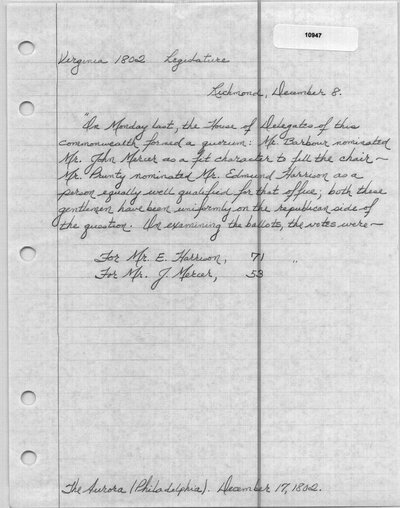 10947
Virginia 1802 Legislature
Richmond, December 8.
"On Monday last, the House of Delegates of this
commonwealth formed a quorum: Mr. Barbour nominated
Mr. John Mercer as a fit character to fill the chair ~
Mr. Prunty nominated Mr. Edmund Harrison as a
person equally well qualified for that office; both these
gentlemen have been uniformly on the republican side of
the question. On examining the ballots, the votes were ~
For Mr. E. Harrison, 71 "
For Mr. J. Mercer, 53
The Aurora (Philadelphia). December 17, 1802.